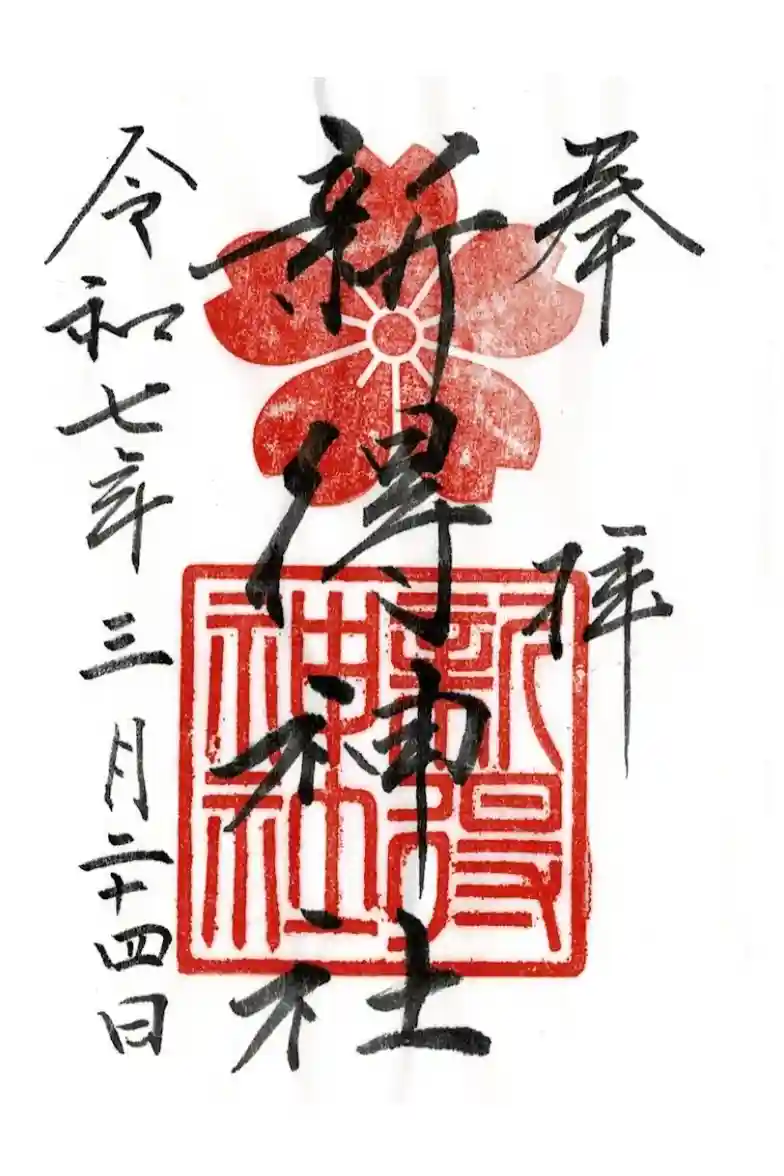 奉拝
新得神社
令和七年三月二十四日
新得神社